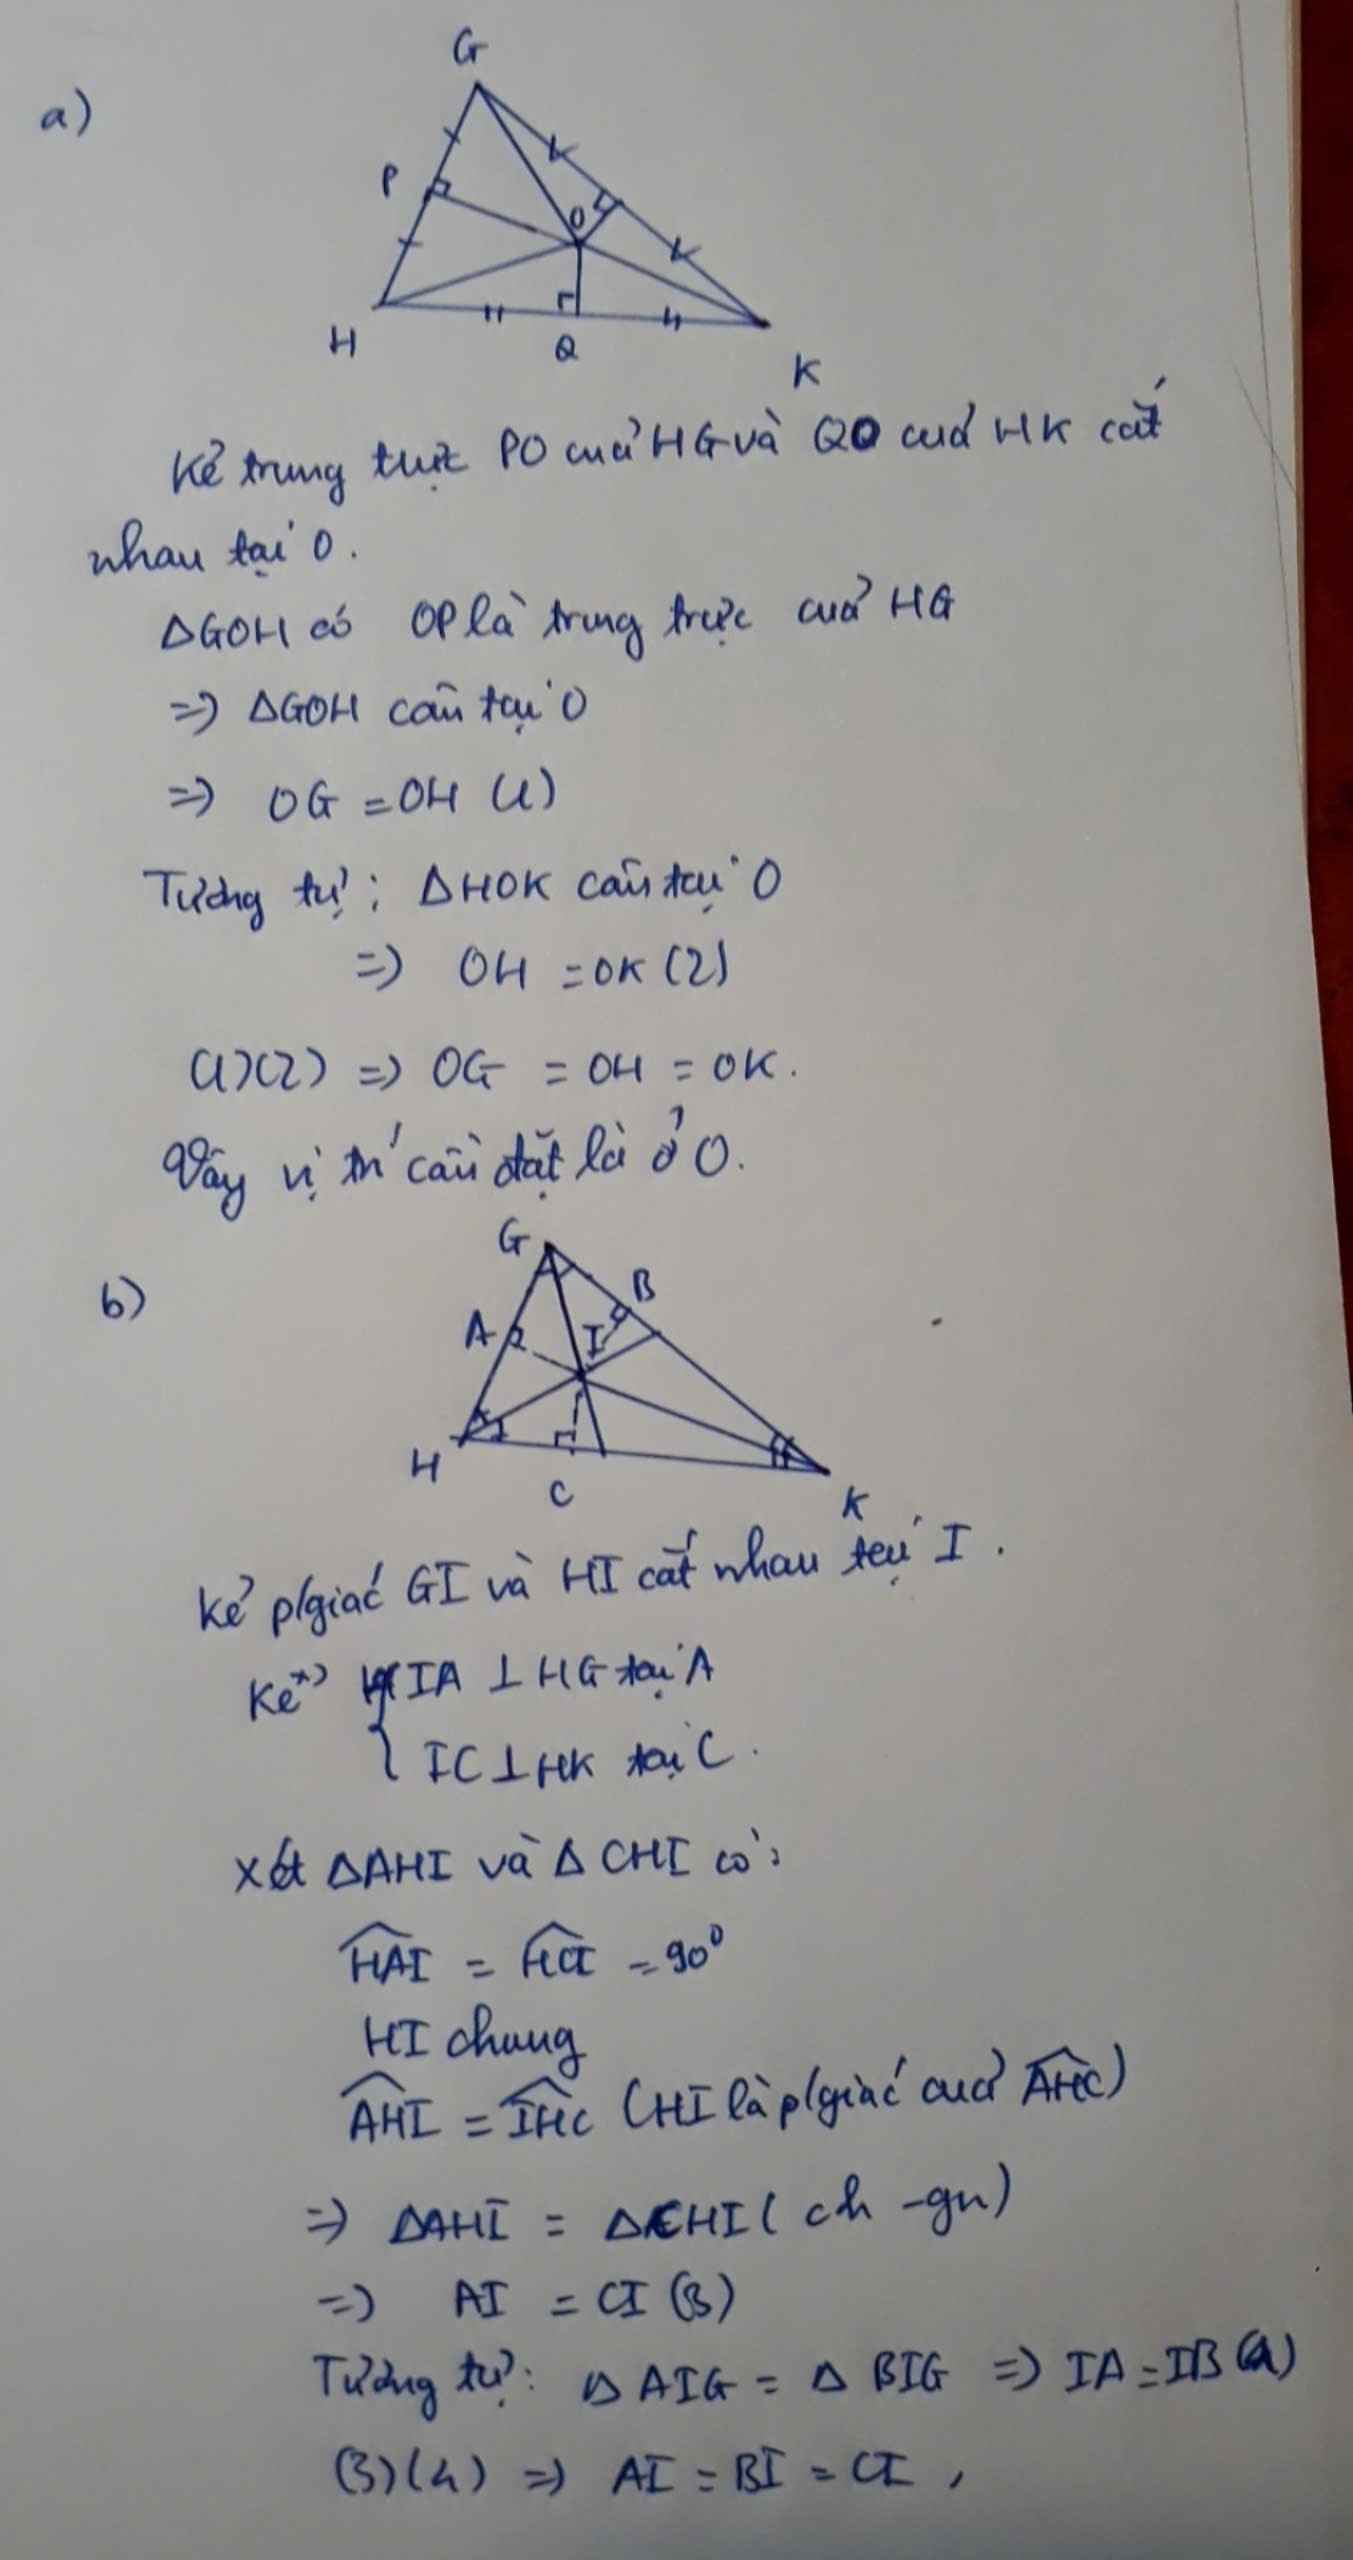 a)
G
P
O
H
Q
K
Kẻ trung trực PO của HG và QO của HK cắt
nhau tại O.
ΔGOH có OP là trung trực của HG
=> ΔGOH cân tại O
=> OG = OH (1)
Tương tự: ΔHOK cân tại O
=> OH = OK (2)
(1)(2) => OG = OH = OK.
Vậy vị trí cần đặt là ở O.
b)
G
B
A
I
H
C
K
Kẻ p/giác GI và HI cắt nhau tại I.
Kẻ { IA ⊥ HG tại A
IC ⊥ HK tại C.
Xét ΔAHI và ΔCHI có:
\widehat{HAI} = \widehat{HCI} = 90°
HI chung
\widehat{AHI} = \widehat{IHC} (HI là p/giác của \widehat{AHC})
=> ΔAHI = ΔCHI (ch - gn)
=> AI = CI (3)
Tương tự: ΔAIG = ΔBIG => IA = IB (4)
(3)(4) => AI = BI = CI,